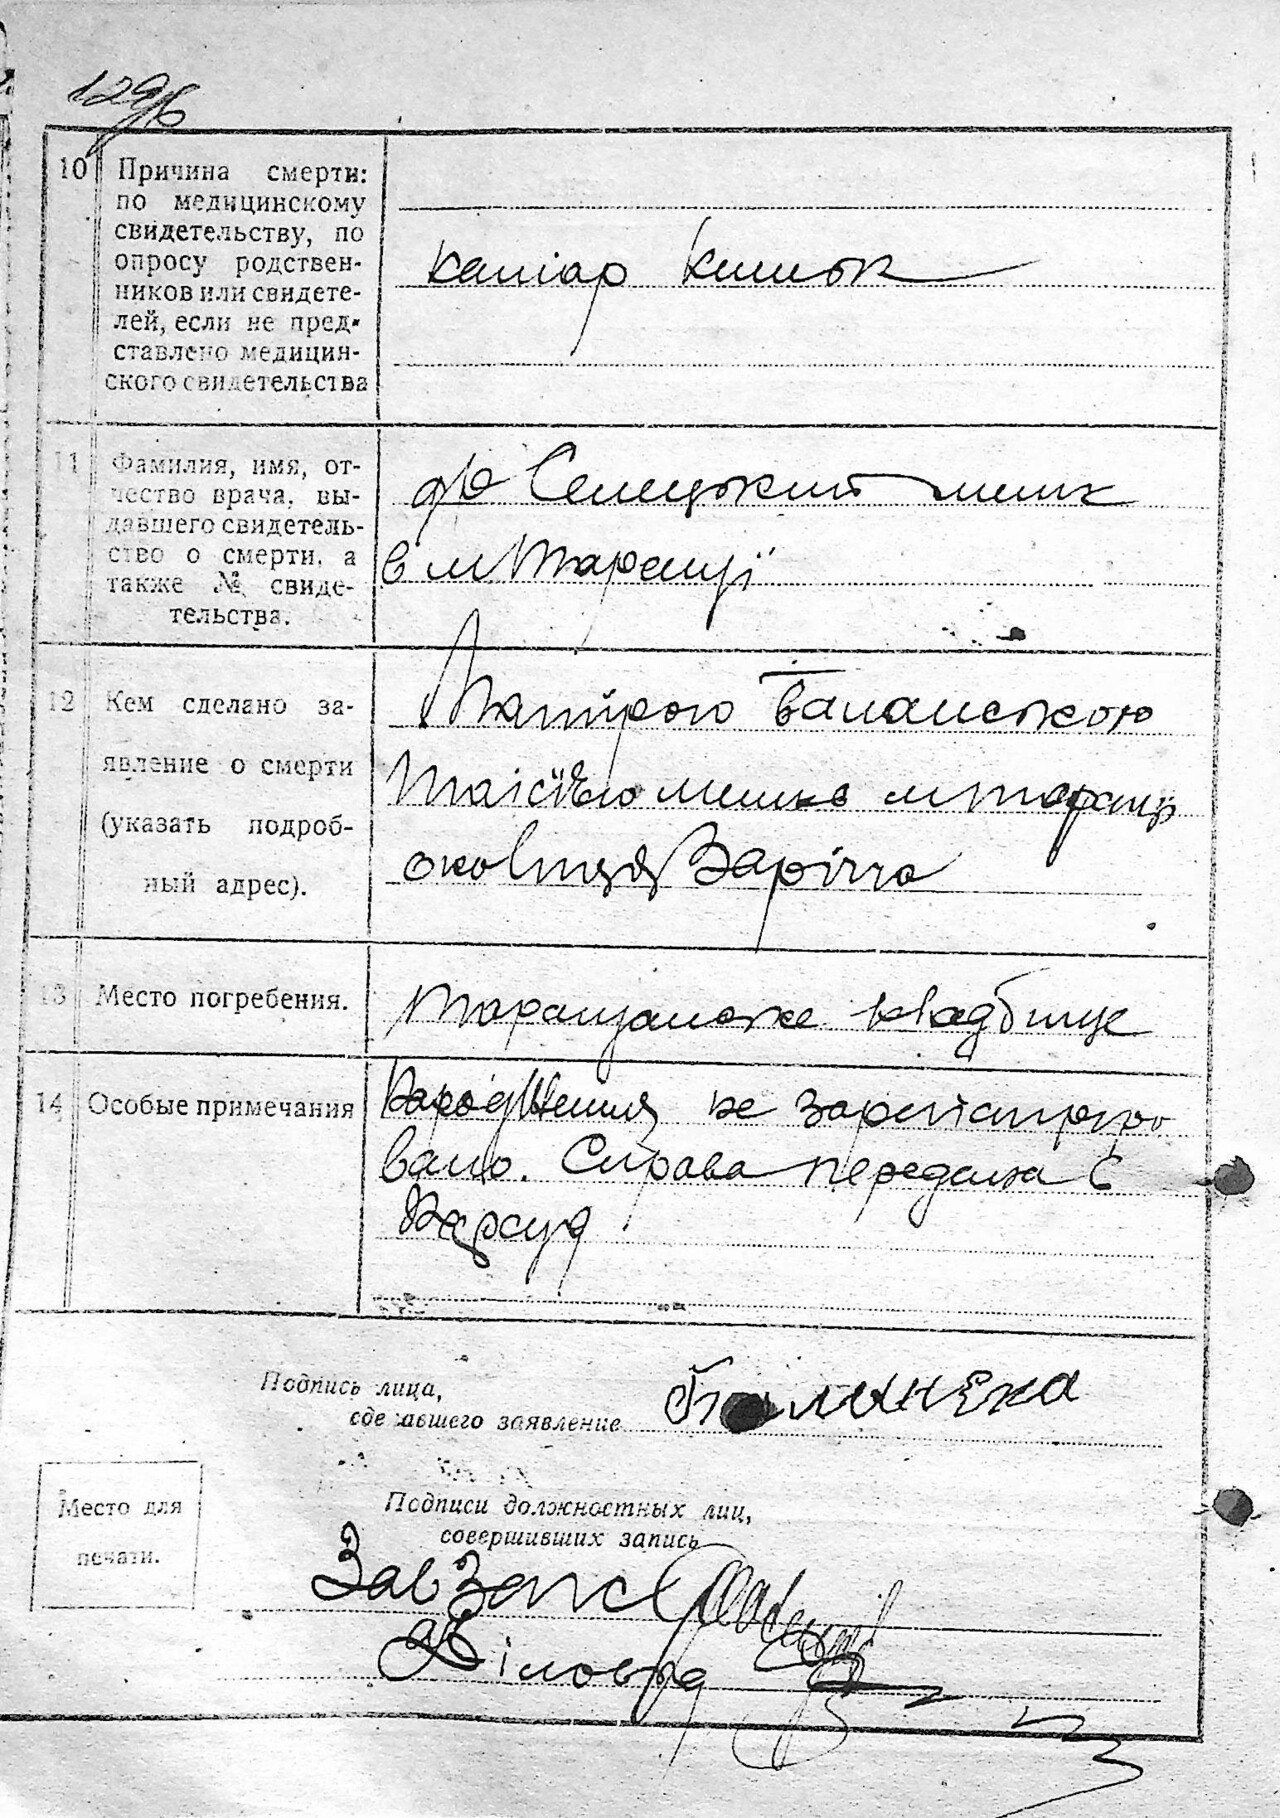 129б
10 Причина смерти:
по медицинскому
свидетельству, по
опросу родствен-
ников или свидете-
лей, если не пред-
ставлено медицин-
ского свидетельства
катар кишок
11 Фамилия, имя, от-
чество врача, вы-
давшего свидетель-
ство о смерти, а
также № свиде-
тельства.
Селецький мешк
в м Таращі
12 Кем сделано за-
явление о смерти
(указать подроб-
ный адрес).
Матірою Баланською
Таісією мешка м Таращ
околиця Заріччя
13 Место погребения.
Таращанське кладбище
14 Особые примечания
Народження не зареистріро
вано. Справа передана в
Нарсуд
Подпись лица,
сделавшего заявление
Место для
печати.
Подписи должностных лиц,
совершивших запись
Зав Загс
Діловод